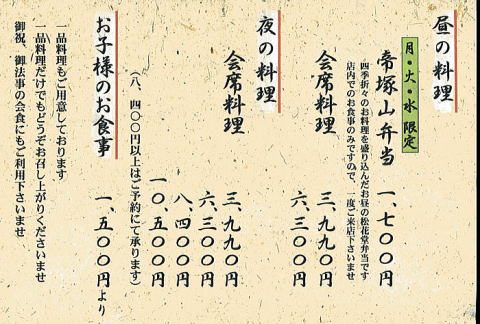 昼の料理
月・火・水 限定
帝塚山弁当 一、七〇〇円
四季折々のお料理を盛り込んだお昼の松花堂弁当です
店内でのお食事のみですので、一度ご来店下さいませ
会席料理 三、九九〇円
六、三〇〇円
夜の料理
会席料理 三、九九〇円
六、三〇〇円
八、四〇〇円
一〇、五〇〇円
（八、四〇〇円以上はご予約にて承ります）
お子様のお食事 一、五〇〇円より
一品料理もご用意しております
一品料理だけでもどうぞお召し上がりくださいませ
御祝、御法事の会食にもご利用下さいませ